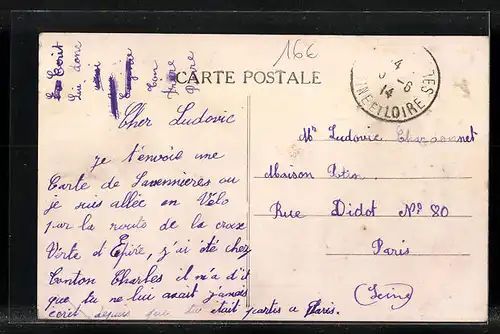 166
CARTE POSTALE
4
5 - 6
14
INE ET LOIRE
Ecrit
Lui donc
Ton
frère
Cher Ludovic
je t'envoie une
Carte de Savennieres ou
je suis allée en Vélo
par la route de la croix
Verte d'Epiré, j'ai été chez
Tonton Charles il m'a dit
que tu ne lui avait j'amais
ecrit depuis que tu était partis a Paris.
Mr Ludovic
Maison Potin
Rue Didot No 80
Paris
(Seine)